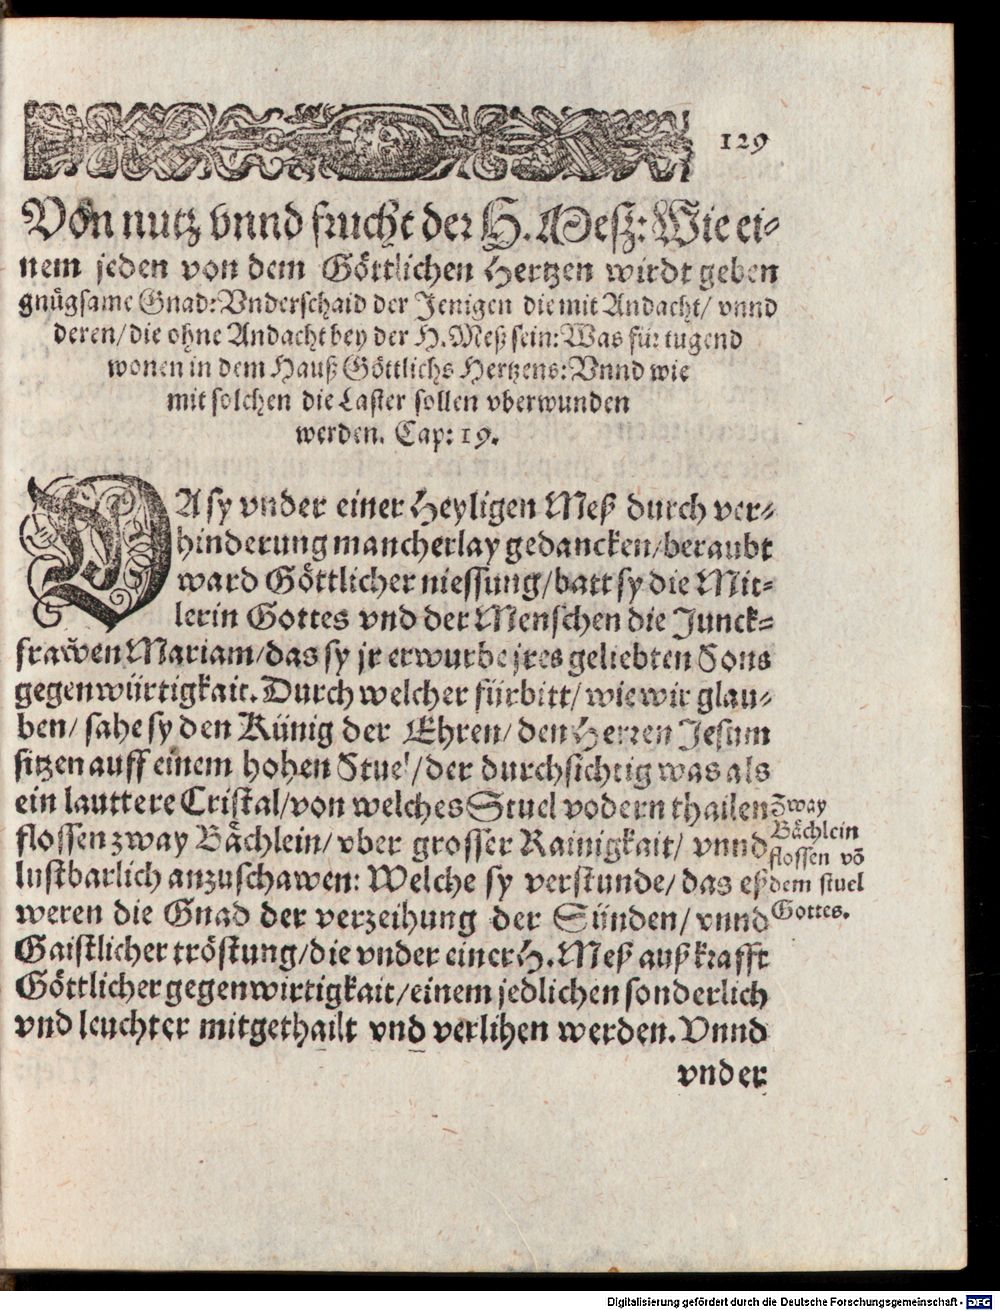 129
Von nutz vnnd frucht der H. Mesz: Wie ei-
nem jeden von dem Göttlichen Hertzen wirdt geben
gnügsame Gnad: Vnderschaid der Jenigen die mit Andacht/ vnnd
deren/ die ohne Andacht bey der H. Meß sein: Was für tugend
wonen in dem Hauß Göttlichs Hertzens: Vnnd wie
mit solchen die Laster sollen vberwunden
werden. Cap: 19.
DA sy vnder einer Heyligen Meß durch ver-
hinderung mancherlay gedancken/ beraubt
ward Göttlicher niessung/ batt sy die Mit-
lerin Gottes vnd der Menschen die Junck-
frawen Mariam/ das sy jr erwurbe jres geliebten Sons
gegenwürtigkait. Durch welcher fürbitt/ wie wir glau-
ben/ sahe sy den Künig der Ehren/ den Herren Jesum
sitzen auff einem hohen Stuel/ der durchsichtig was als
ein lauttere Cristal/ von welches Stuel vodern thailen
flossen zway Bächlein/ vber grosser Rainigkait/ vnnd
lustbarlich anzuschawen: Welche sy verstunde/ das eß
weren die Gnad der verzeihung der Sünden/ vnnd
Gaistlicher tröstung/ die vnder einer H. Meß auß krafft
Göttlicher gegenwirtigkait/ einem jedlichen sonderlich
vnd leuchter mitgethailt vnd verlihen werden. Vnnd
vnder
Zway
Bächlein
flossen võ
dem stuel
Gottes.
Digitalisierung gefördert durch die Deutsche Forschungsgemeinschaft - DFG